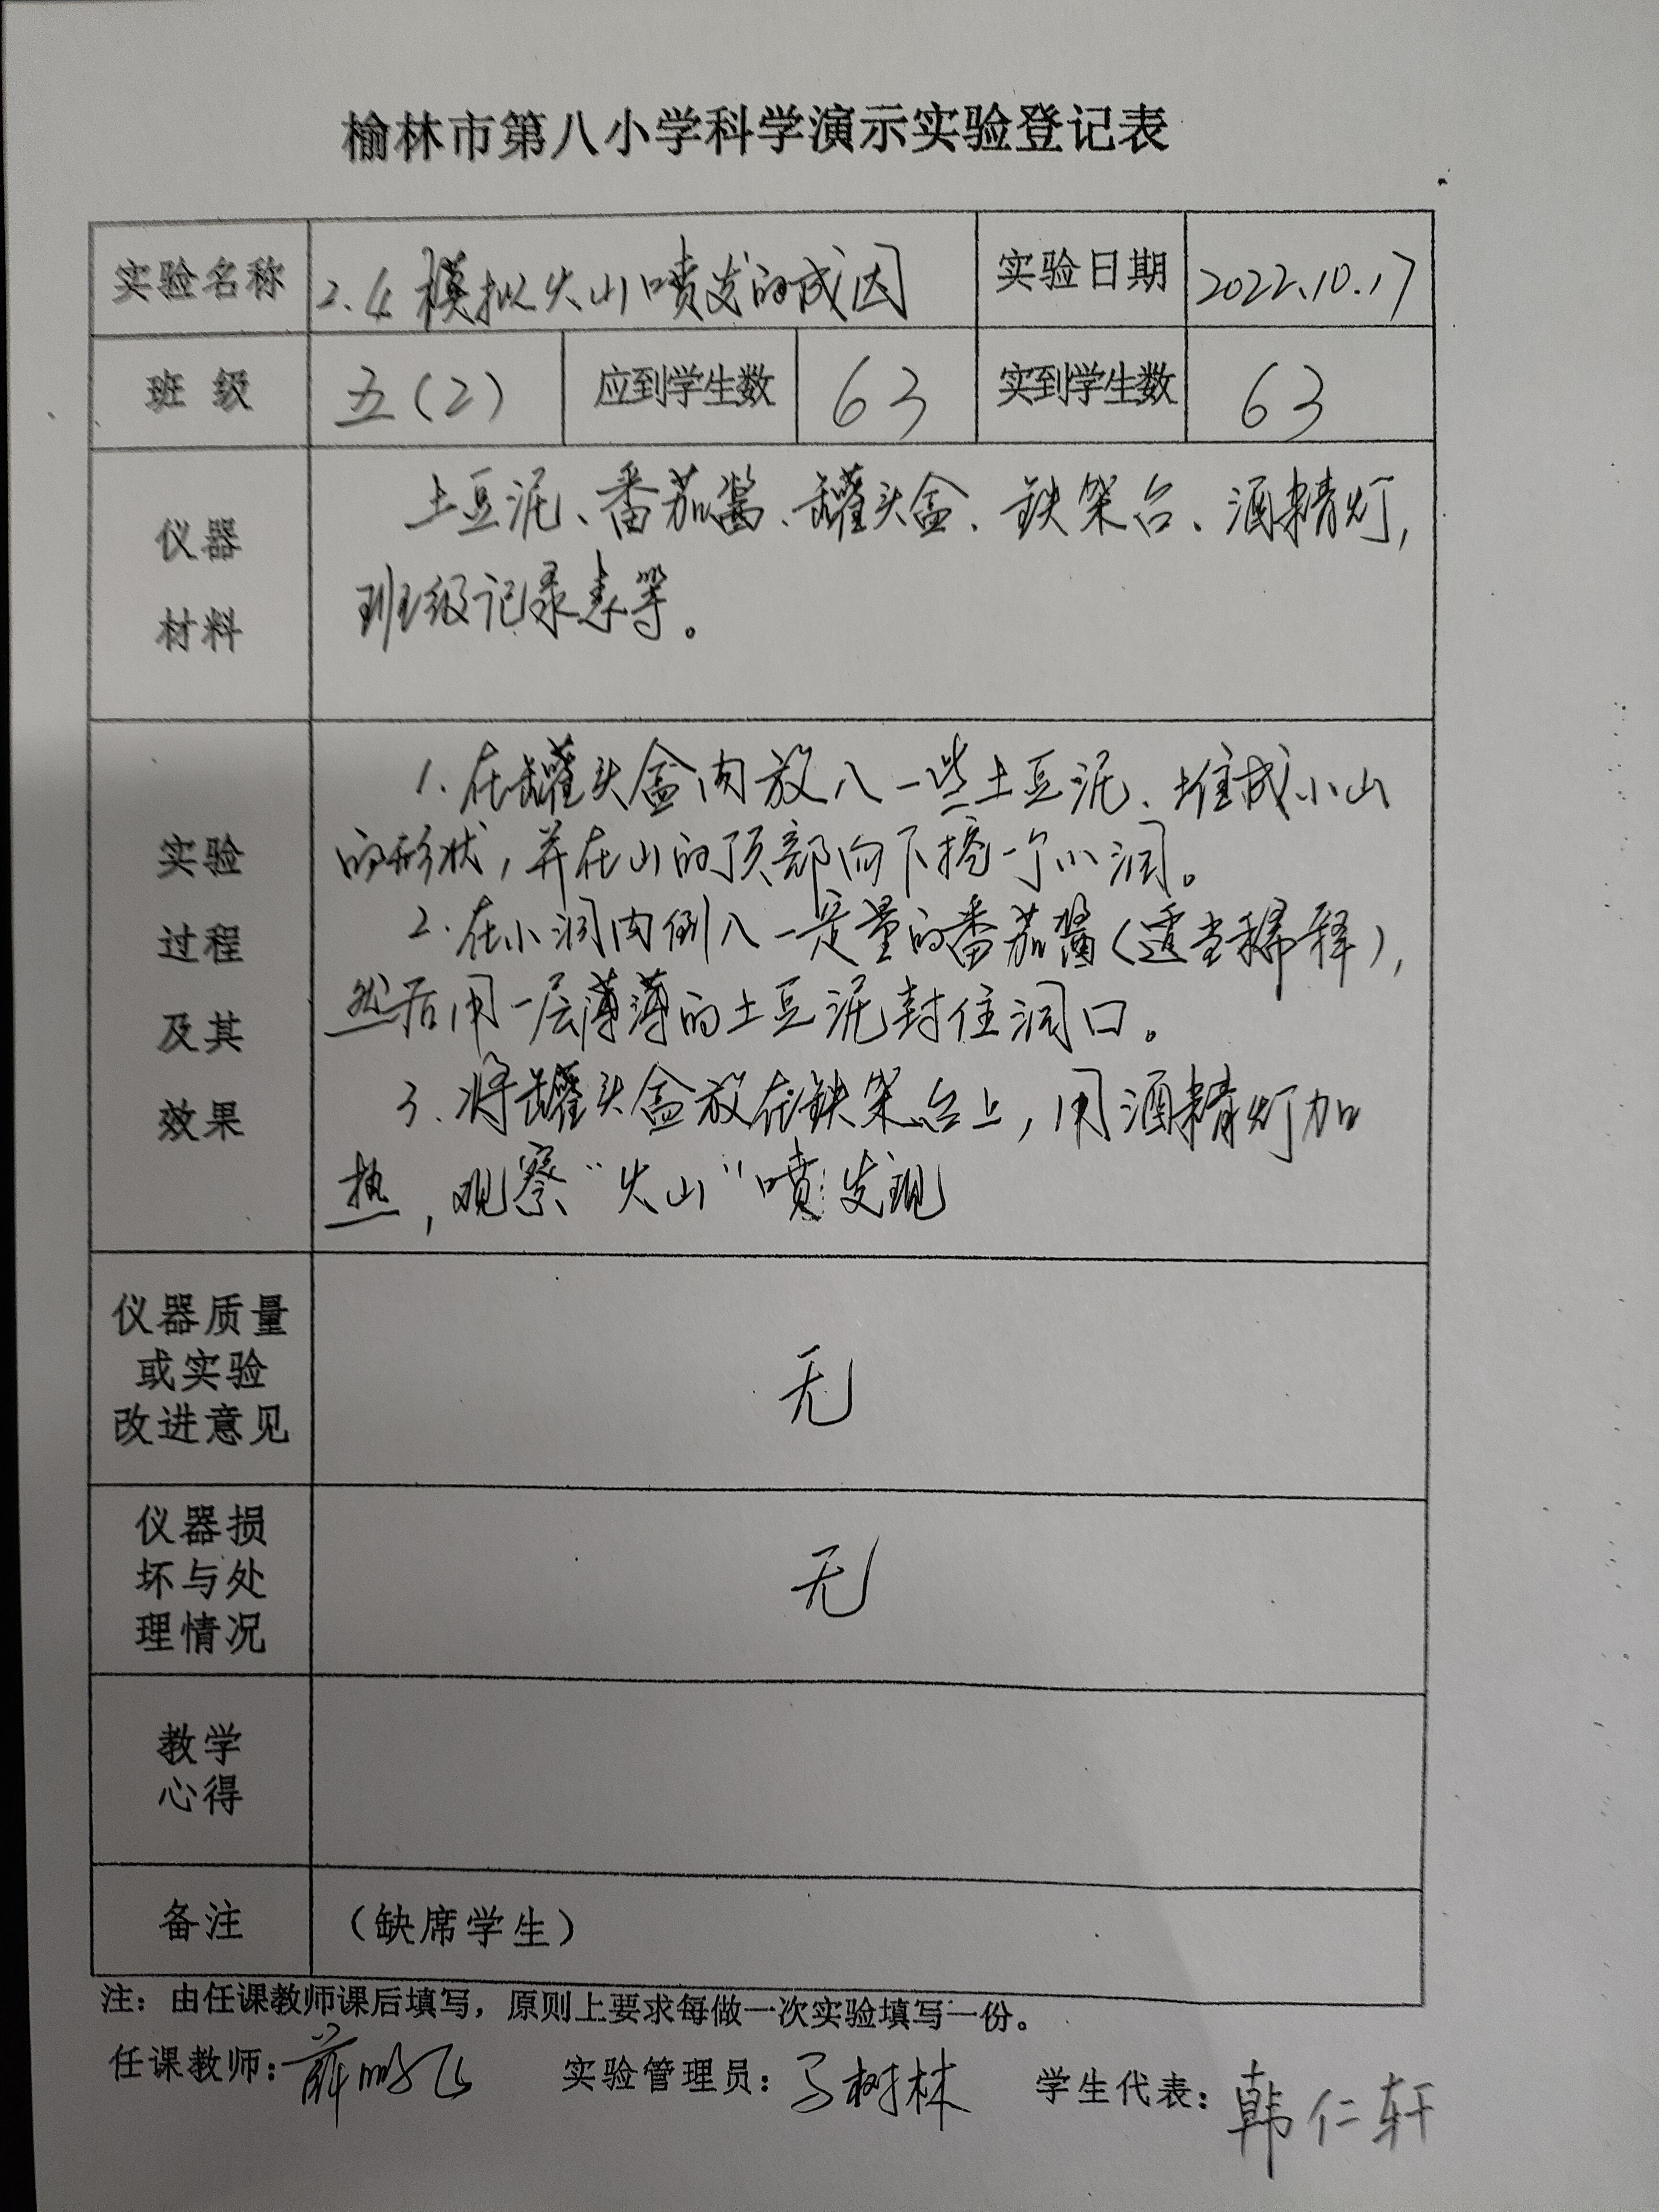 榆林市第八小学科学演示实验登记表
实验名称 2.4 模拟火山喷发的成因 实验日期 2022.10.17
班 级 五(2) 应到学生数 63 实到学生数 63
仪器
材料
土豆泥、番茄酱、罐头盒、铁架台、酒精灯,
班级记录表等。
实验
过程
及其
效果
1.在罐头盒内放入一些土豆泥、堆成小山
的形状,并在山的顶部向下挖一个小洞。
2.在小洞内倒入一定量的番茄酱(适当稀释),
然后用一层薄薄的土豆泥封住洞口。
3.将罐头盒放在铁架台上,用酒精灯加
热,观察"火山"喷发现
仪器质量
或实验
改进意见
无
仪器损
坏与处
理情况
无
教学
心得
备注 (缺席学生)
注:由任课教师课后填写,原则上要求每做一次实验填写一份。
任课教师:薛鹏飞 实验管理员:马树林 学生代表:韩仁轩